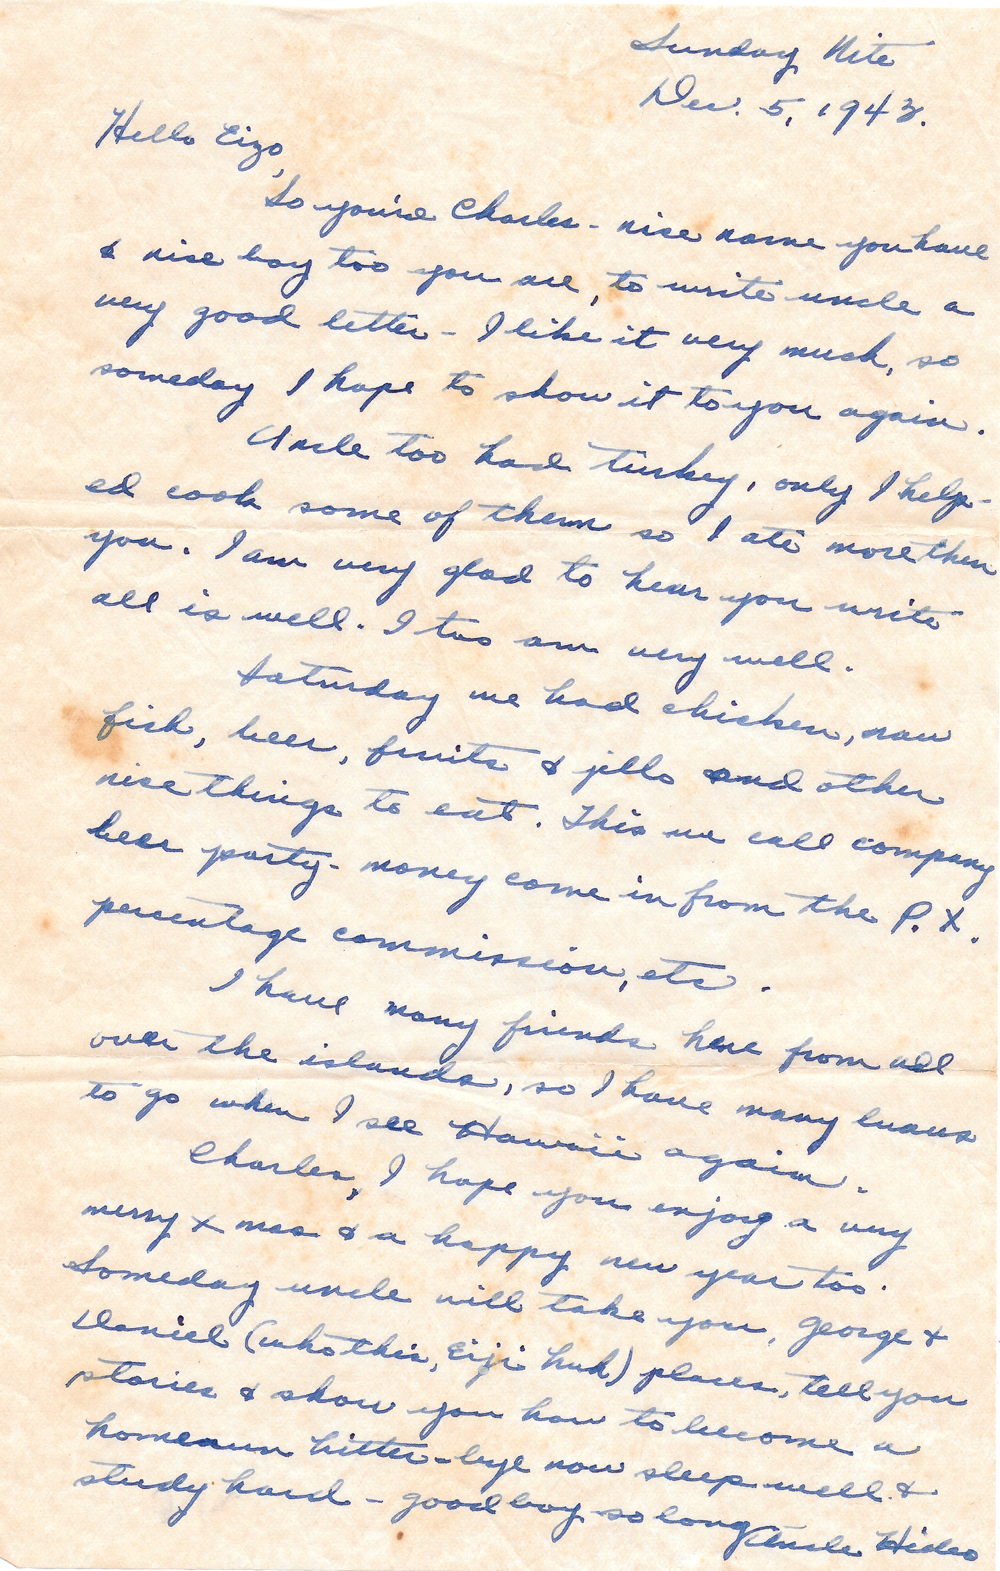 Sunday Nite
Dec. 5, 1943.
Hello Eizo,
So you're Charles - nise name you have
& nise boy too you are, to write uncle a
very good letter - I like it very much, so
someday I hope to show it to you again.
Uncle too had turkey, only I help-
ed cook some of them so I ate more then
you. I am very glad to hear you write
all is well. I too am very well.
Saturday we had chicken, raw
fish, beer, fruits & jello and other
nise things to eat. This we call company
beer party - money come in from the P.X.
percentage commission, etc.
I have many friends here from all
over the islands, so I have many luaus
to go when I see Hawaii again.
Charles, I hope you enjoy a very
merry x mas & a happy new year too.
Someday uncle will take you, George &
Daniel (who this, Eiji huh) places, tell you
stories & show you how to become a
homerun hitter - bye now sleep well &
study hard - good boy so long
Uncle Hideo